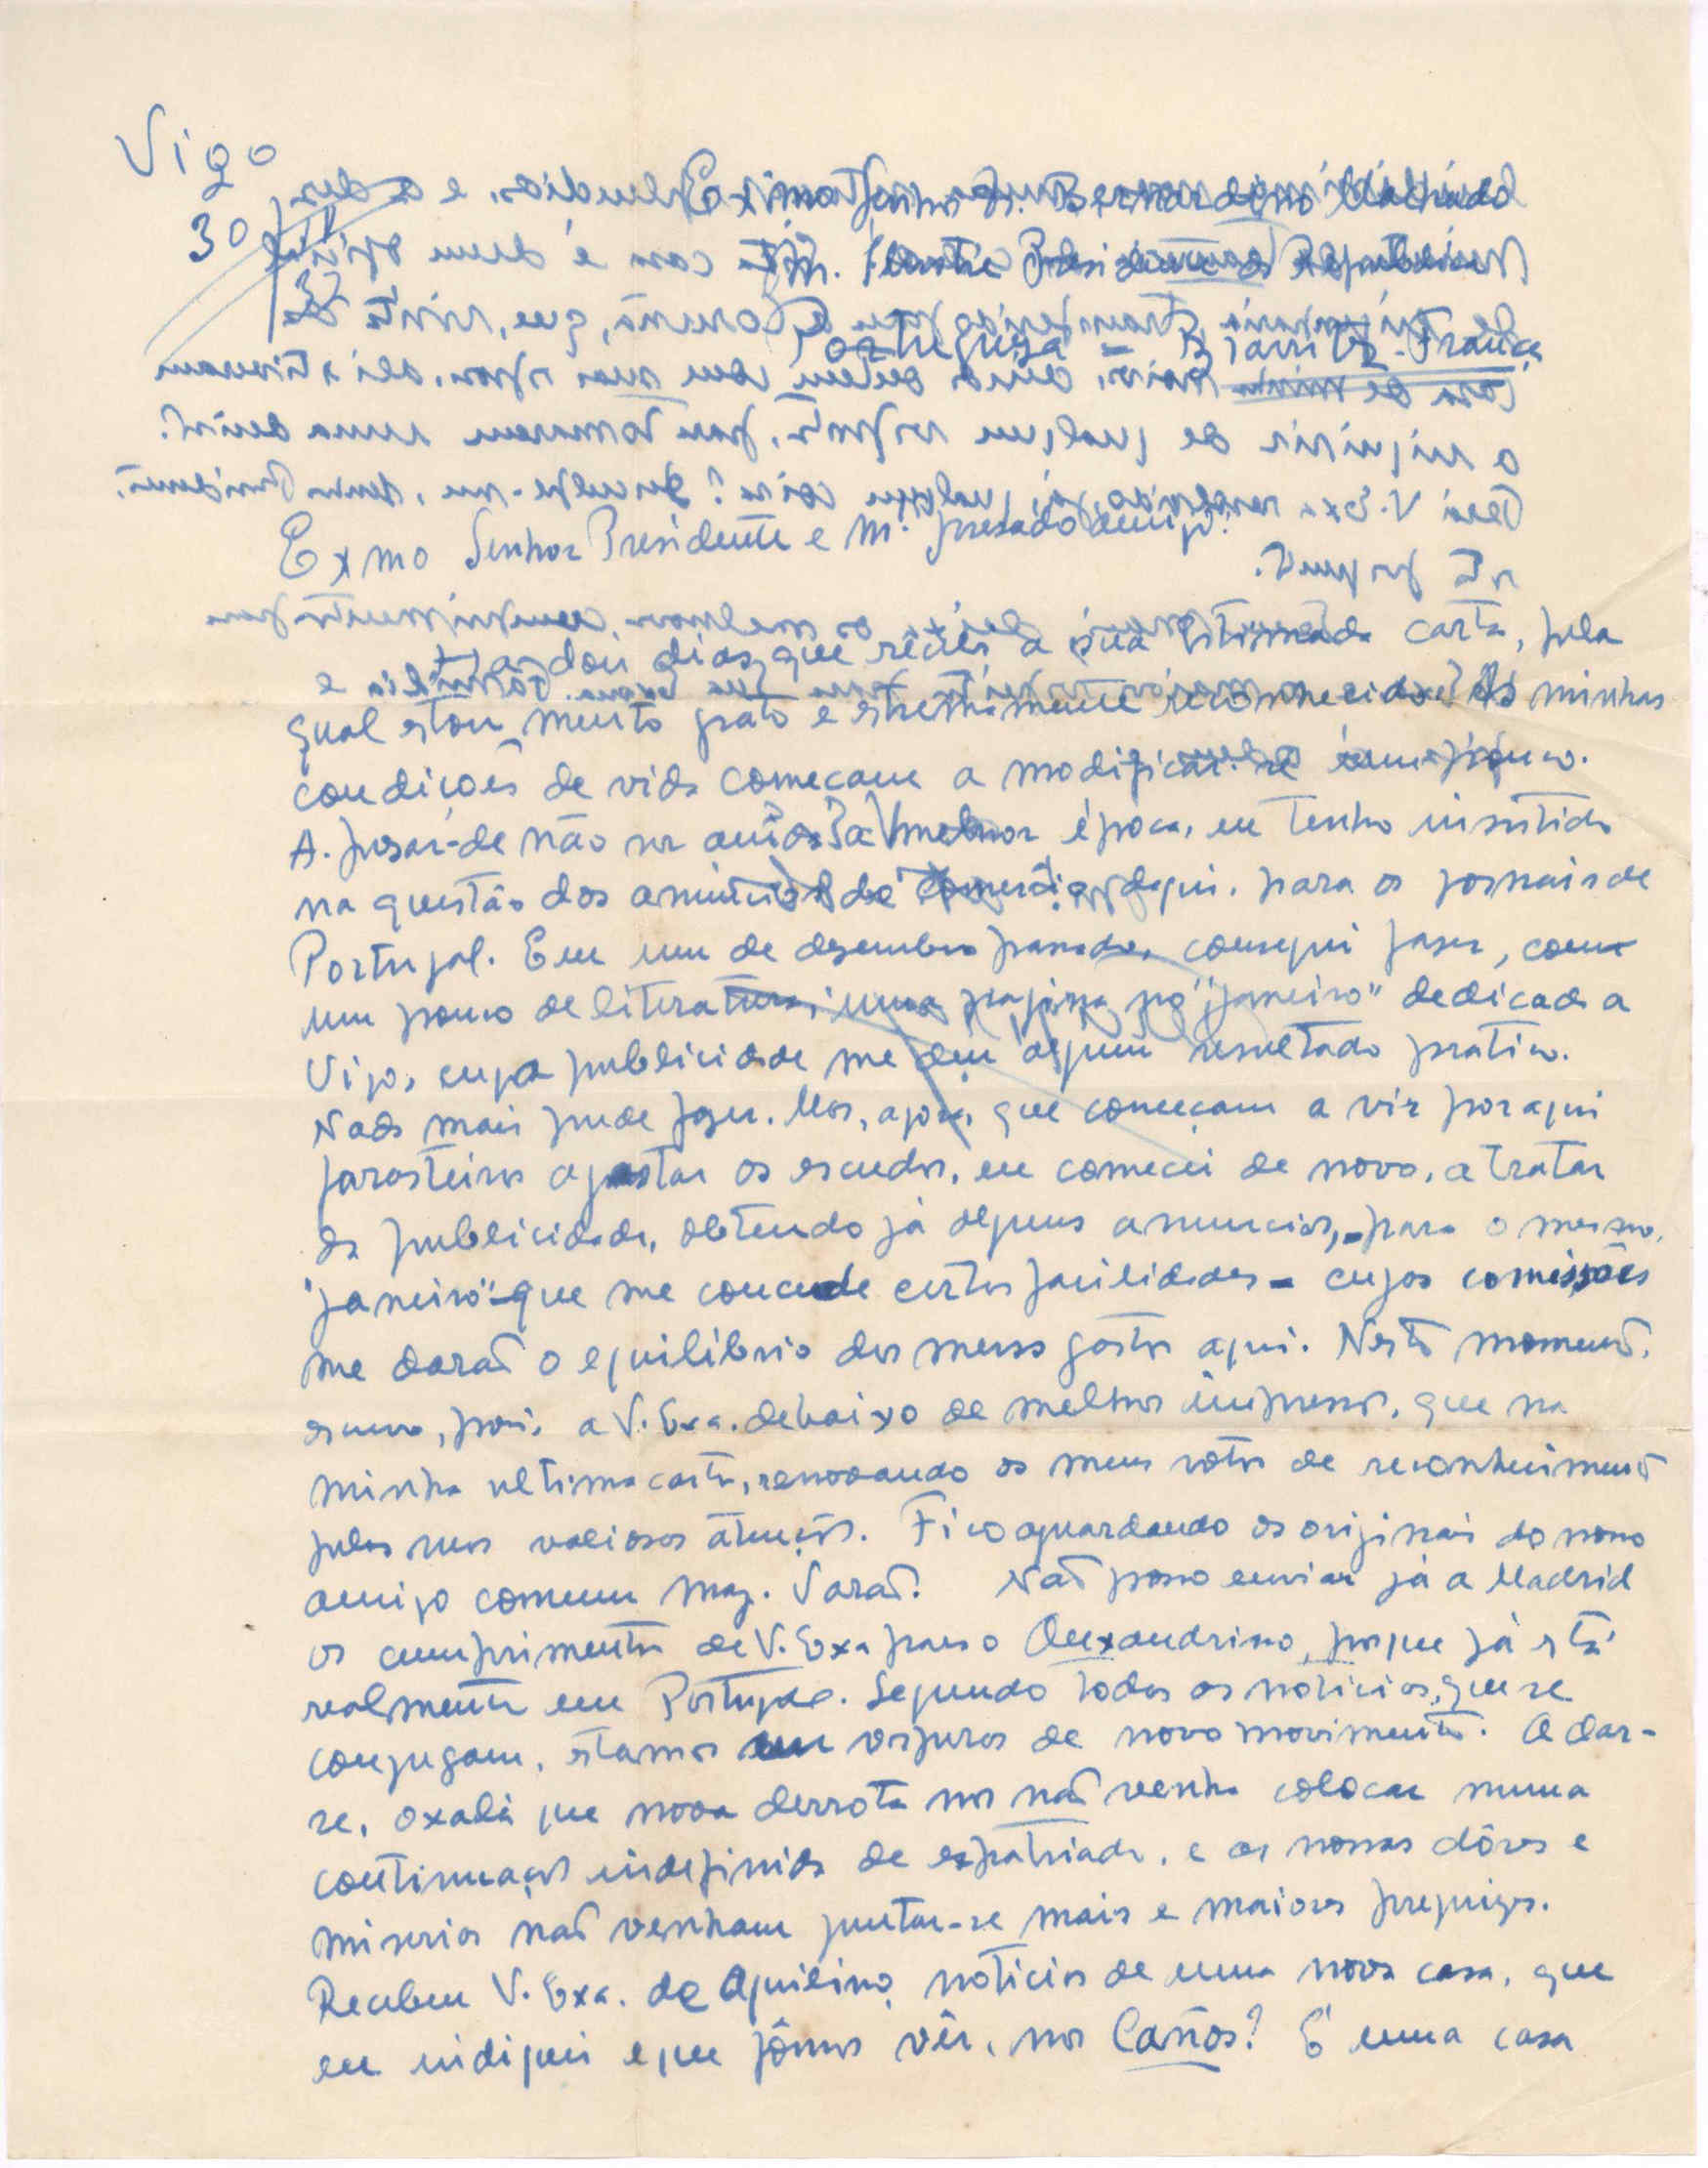 Vigo
30/IV
32
Exmo Senhor Dr. Bernardino Machado
M. Ilustre Presidente da Republica
Portuguesa = Biarritz - França
Exmo Senhor Presidente e m. presado amigo:
dias, que recebi a sua estimada carta, pela
qual estou muito grato e extremamente reconhecido. As minhas
condições de vida começam a modificar-se um pouco.
A-pesar-de não ser ainda a melhor época, eu tenho insistido
na questão dos anuncios do comercio daqui, para os jornais de
Portugal. Em um de dezembro passado, consegui fazer, com
um pouco de literatura, uma pagina no "Janeiro" dedicada a
Vigo, cuja publicidade me deu algum resultado pratico.
Nada mais pude fazer. Mas, agora, que começam a vir por aqui
forasteiros a gastar os escudos, eu comecei de novo, a tratar
da publicidade, obtendo já alguns anuncios, - para o mesmo
"Janeiro" que me concede certas facilidades - cujas comissões
me darão o equilibrio dos meus gastos aqui. Neste momento,
escrevo, pois, a V. Exa. debaixo de melhor impressão, que na
minha ultima carta, renovando os meus votos de reconhecimento
pelas suas valiosas atenções. Fico aguardando os originais do nosso
amigo comum Maj. Sarað. Não posso enviar já a Madrid
os cumprimentos de V. Exa para o Alexandrino, porque já está
realmente em Portugal. Segundo todas as noticias, que se
conjugam, estamos em vesperas de novo movimento. A dar-
se, oxalá que nova derrota nos não venha colocar numa
continuação indefinida de expatriados, e as nossas dôres e
miserias não venham juntar-se mais e maiores prejuizos.
Recebeu V. Exa. de Aquilino noticias de uma nova casa, que
eu indiquei e que fômos vêr, nos Caños? É uma casa